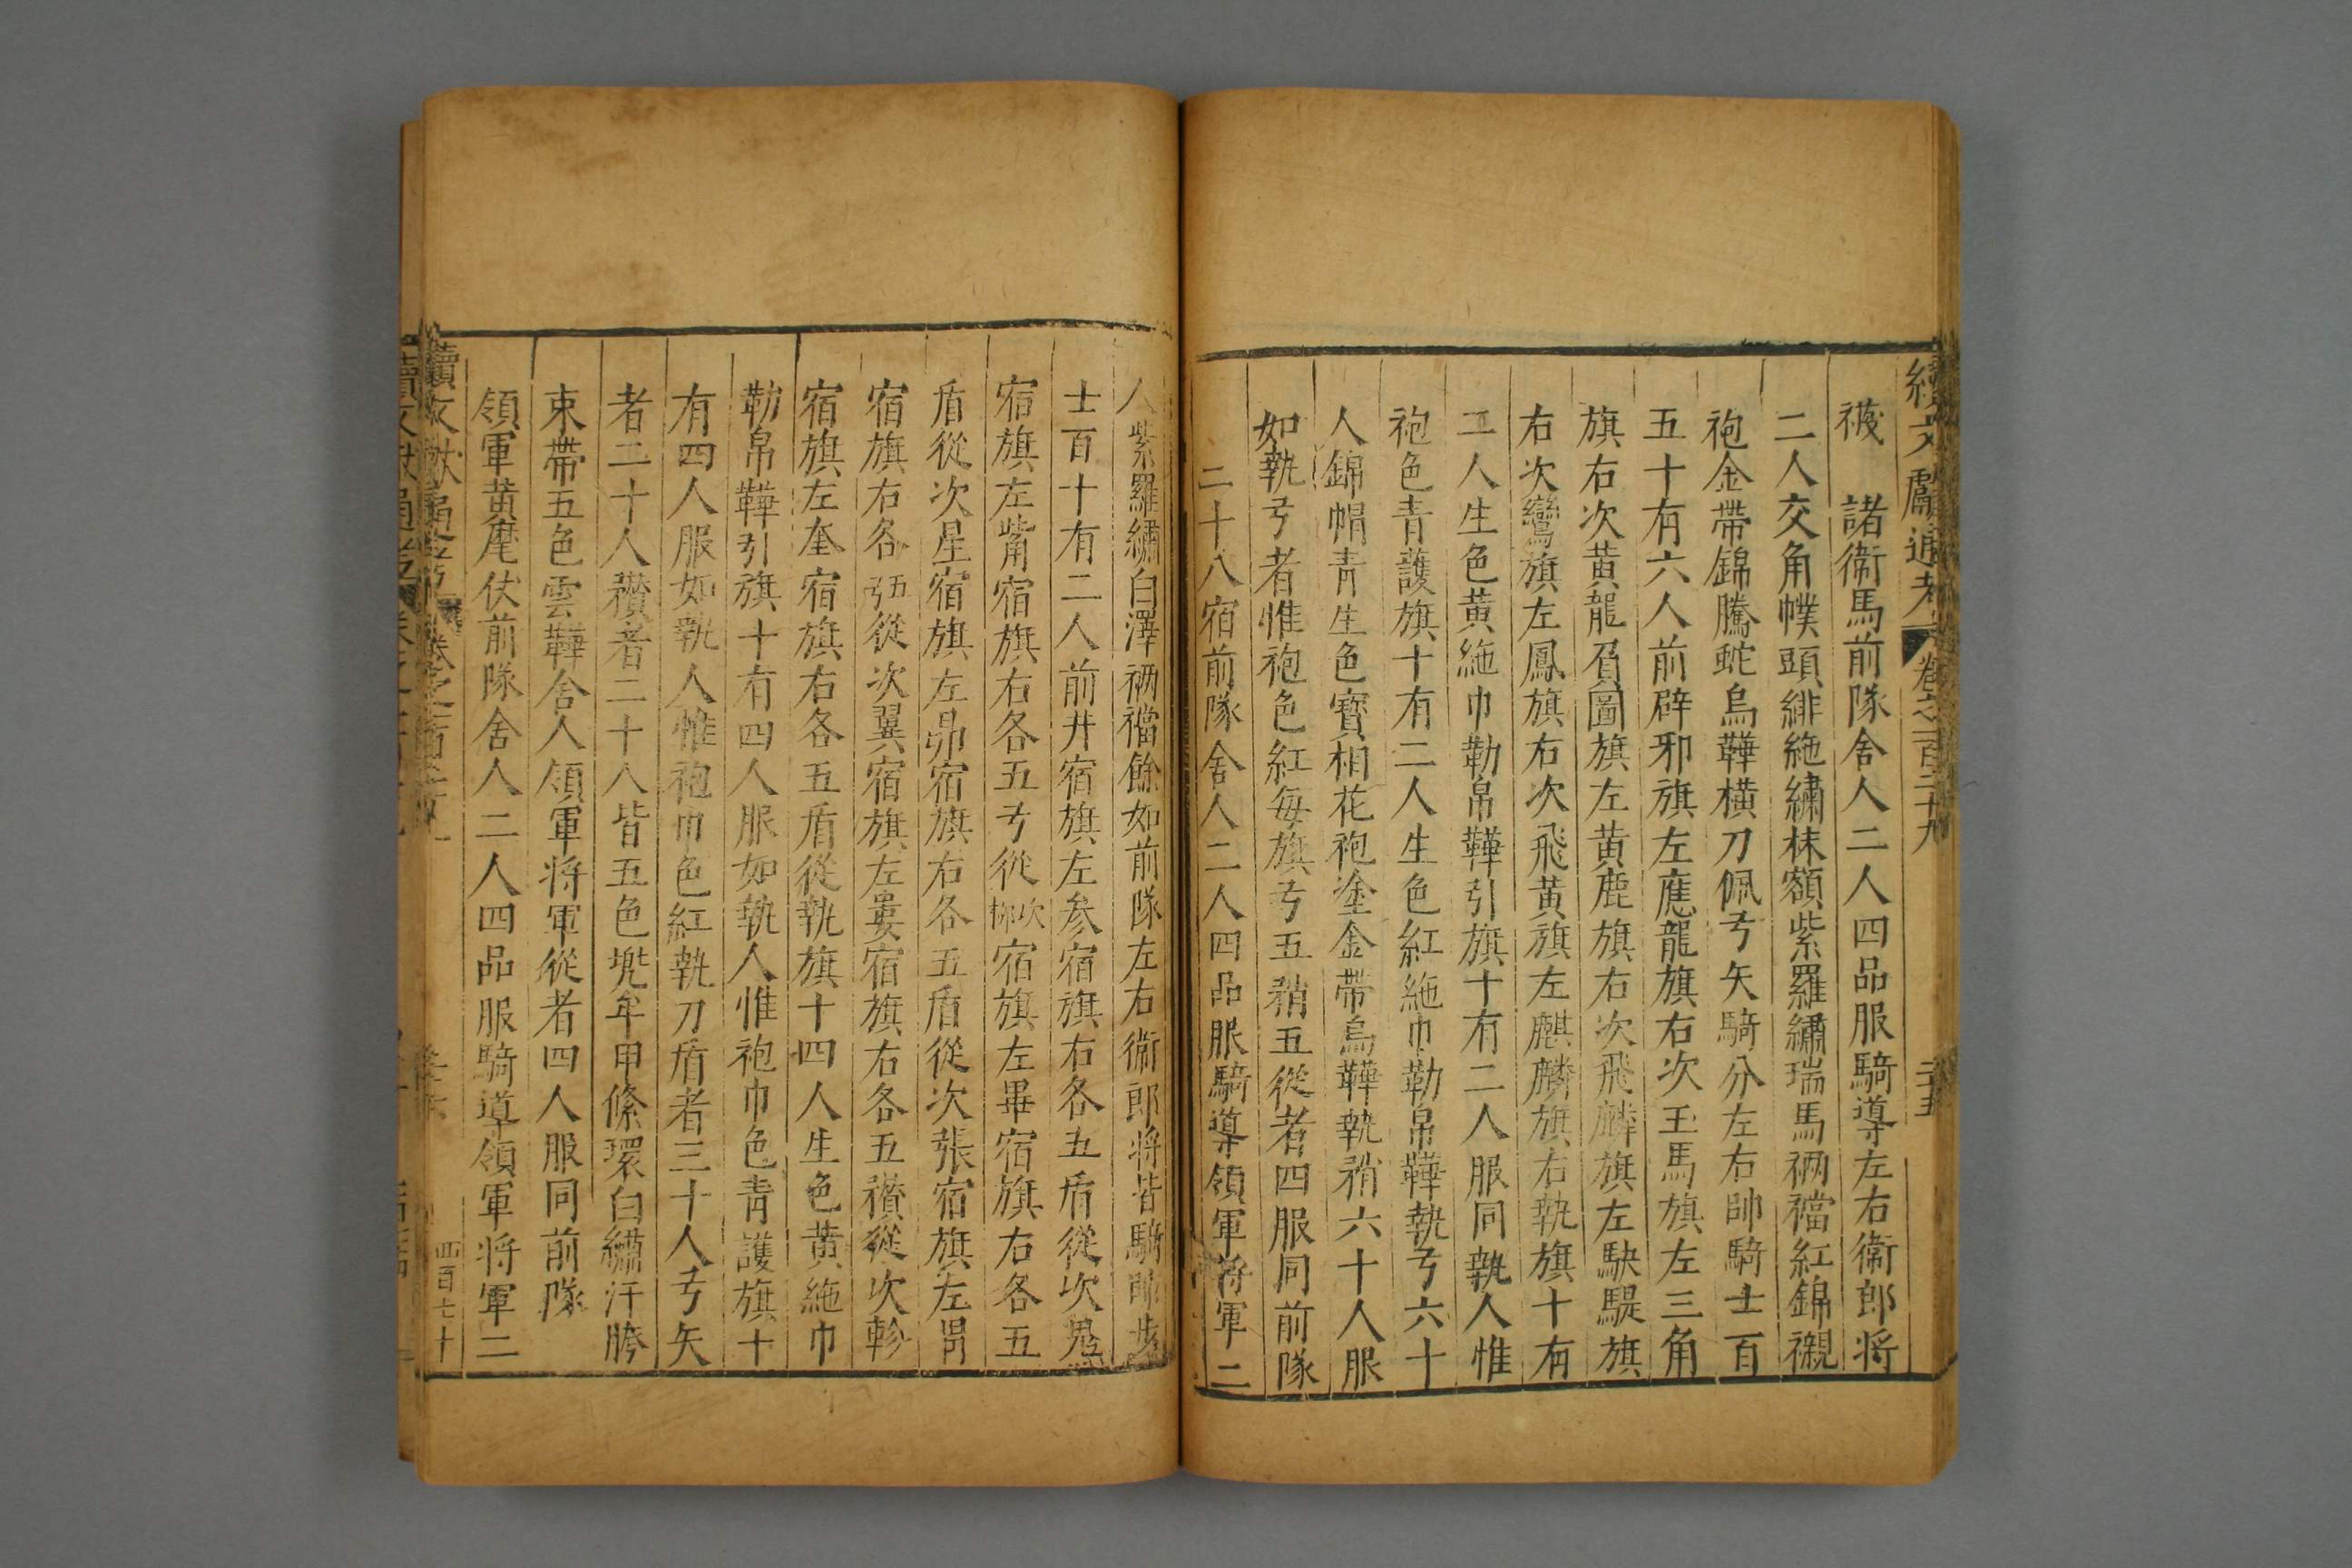 續文獻通考 卷之一百二十九 二五
襪 諸衛馬前隊舍人二人四品服騎導左右衛郎將
二人交角幞頭緋絁繡抹額紫羅繡瑞馬裲襠紅錦襯
袍金帶錦騰蛇烏鞾橫刀佩弓矢騎分左右帥騎士百
五十有六人前辟邪旗左應龍旗右次玉馬旗左三角
旗右次黃龍負圖旗左黃鹿旗右次飛麟旗左駃騠旗
右次鸞旗左鳳旗右次飛黃旗左麒麟旗右執旗十有
二人生色黃絁巾勒帛鞾引旗十有二人服同執人惟
袍色青護旗十有二人生色紅絁巾勒帛鞾執弓六十
人錦帽青生色寶相花袍塗金帶烏鞾執矟六十人服
如執弓者惟袍色紅每旗弓五矟五從者四服同前隊
二十八宿前隊舍人二人四品服騎導領軍將軍二
人紫羅繡白澤裲襠餘如前隊左右衛郎將皆騎帥步
士百十有二人前井宿旗左參宿旗右各五盾從次鬼
宿旗左觜宿旗右各五弓從次柳宿旗左畢宿旗右各五
盾從次星宿旗左昴宿旗右各五盾從次張宿旗左胃
宿旗右各五弓從次翼宿旗左婁宿旗右各五䂎從次軫
宿旗左奎宿旗右各五盾從執旗十四人生色黃絁巾
勒帛鞾引旗十有四人服如執人惟袍巾色青護旗十
有四人服如執人惟袍巾色紅執刀盾者三十人弓矢
者二十人䂎者二十人皆五色兠牟甲絛環白繡汗胯
束帶五色雲鞾舍人領軍將軍從者四人服同前隊
領軍黃麾仗前隊舍人二人四品服騎導領軍將軍二
續文獻通考
四百七十